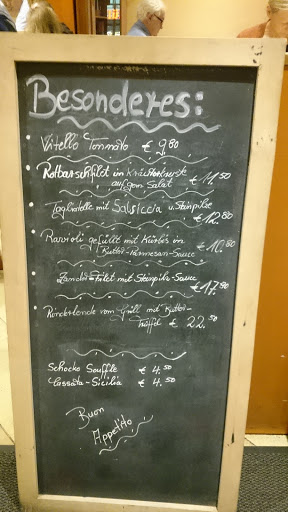 Besonderes:
Vitello Tonnato € 9.80
Rotbarschfilet in Kräuterkruste
auf gem Salat € 11.50
Tagliatelle mit Salsiccia u. Steinpilze
€ 12.80
Ravioli gefüllt mit Kürbis in
Butter-Parmesan-Sauce € 10.80
Zander-Filet mit Steinpilz-Sauce
€ 17.80
Rinderlende vom Grill mit Butter-
Trüffel € 22.50
Schocko Souffle € 4.50
Cassata-Sicilia € 4.50
Buon
Appetito